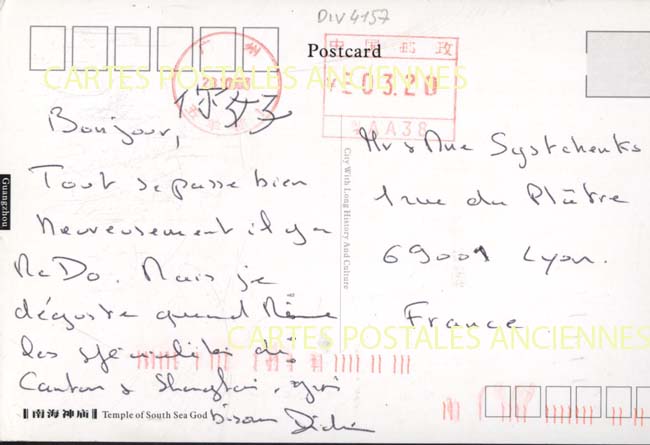 DIV 4157
Postcard
中国邮政
广州
¥ 03.20
AA38
CARTES POSTALES ANCIENNES
你好
Bonjour,
Tout se passe bien
Heureusement il y a
Mc Do. Mais je
déguste quand Même
les spécialités de
Canton & Shanghai.
bisous Didier
Mr & Mme Systchenko
1 rue du Plâtre
69001 Lyon.
France
City With Long History And Culture
Guangzhou
CARTES POSTALES ANCIENNES
南海神庙 Temple of South Sea God